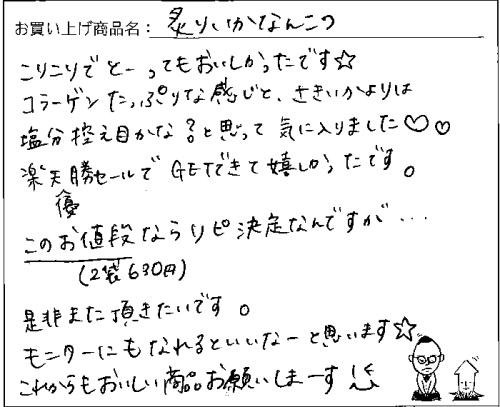 お買い上げ商品名： 炙りいかなんこつ
こりこりでとーってもおいしかったです☆
コラーゲンたっぷりな感じと、さきいかよりは
塩分控え目かな？と思って気に入りました♡♡
楽天優勝セールでGETできて嬉しかったです。
このお値段ならリピ決定なんですが・・・
(2袋630円)
是非また頂きたいです。
モニターにもなれるといいなーと思います☆
これからもおいしい商品お願いしまーす！